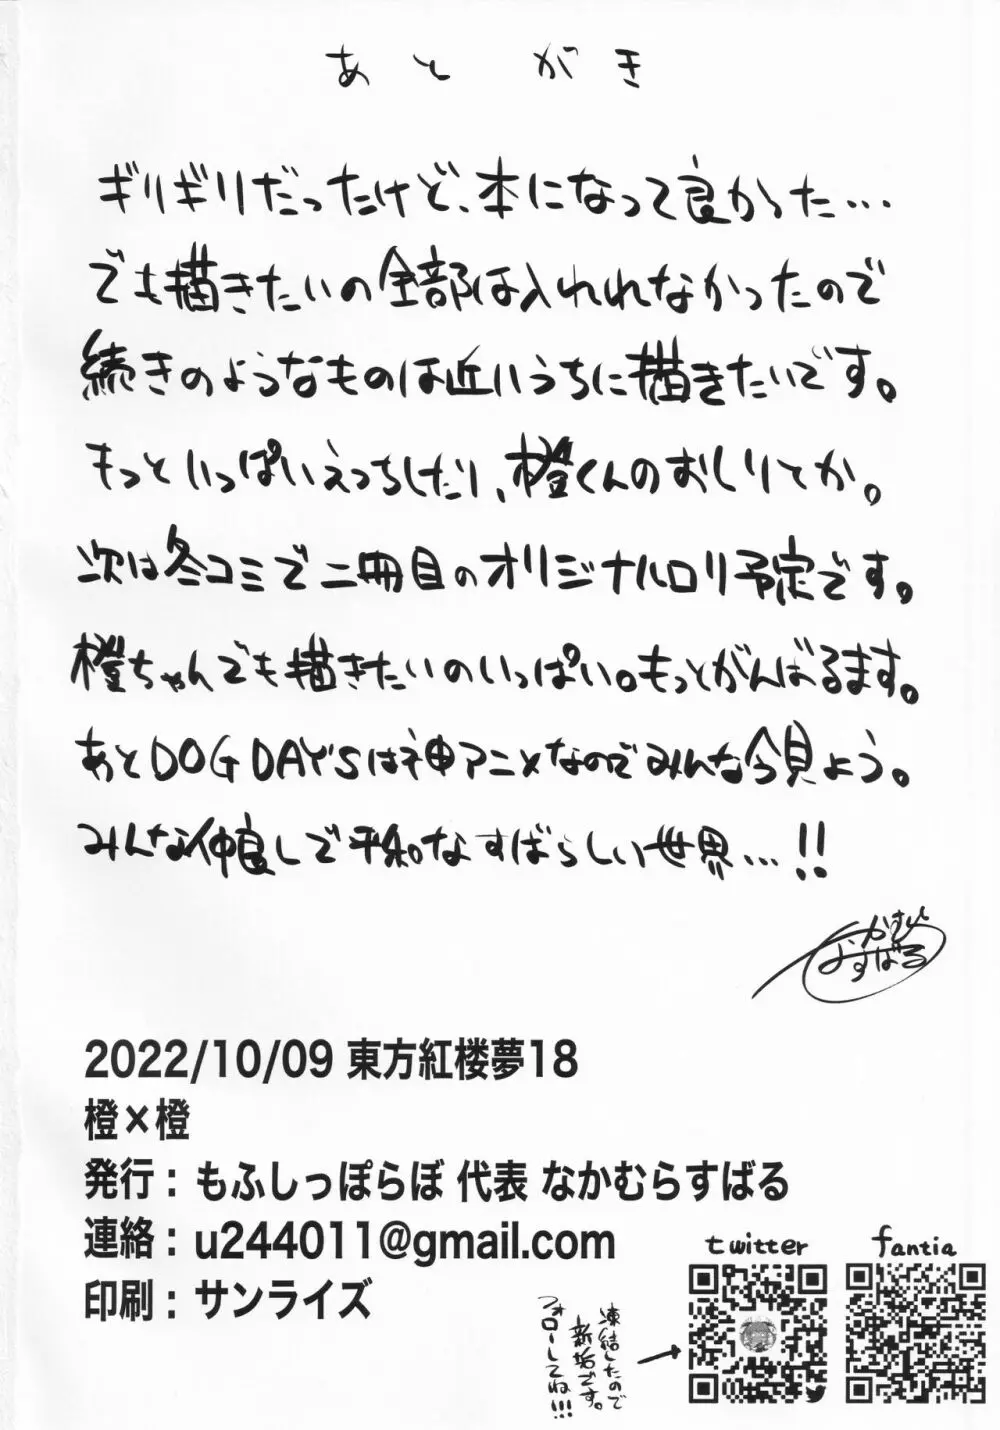 あとがき
ギリギリだったけど、本になって良かった…
でも描きたいの全部は入れれなかったので
続きのようなものは近いうちに描きたいです。
もっといっぱいえっちしたり、橙くんのおしりとか。
次は冬コミで二冊目のオリジナルロリ予定です。
橙ちゃんでも描きたいのいっぱい。もっとがんばるます。
あとDOG DAYSは神アニメなのでみんな今見よう。
みんな仲良しで平和なすばらしい世界…!!
なかむらすばる
2022/10/09 東方紅楼夢18
橙×橙
発行：もふしっぽらぼ 代表 なかむらすばる
連絡：u244011@gmail.com
印刷：サンライズ
twitter
fantia
凍結したので
新垢です。
フォローしてね!!!